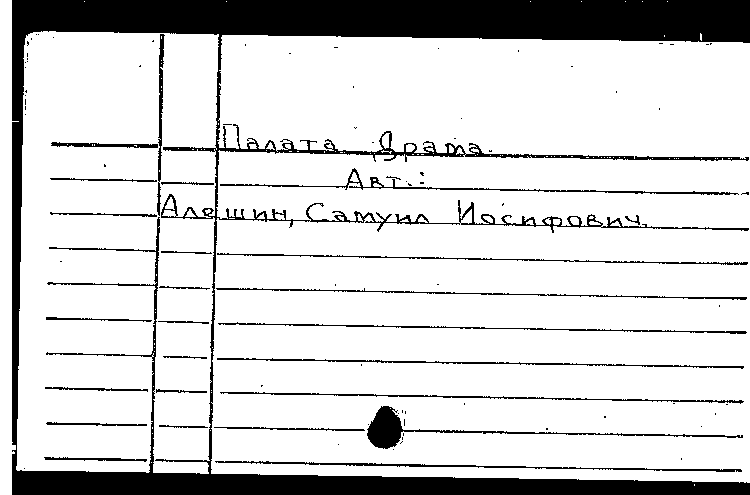 Палата. Драма.
Авт.:
Алешин, Самуил Иосифович.